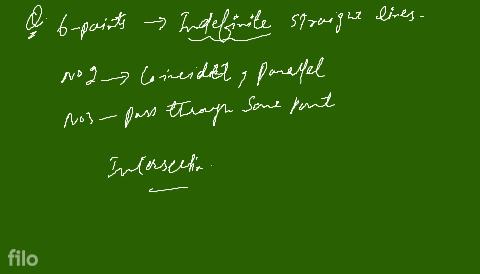 Q. 6-points → Indefinite straight lines.
No 2 → Coincident, parallel
No 3 — pass through same point
Intersection.
filo